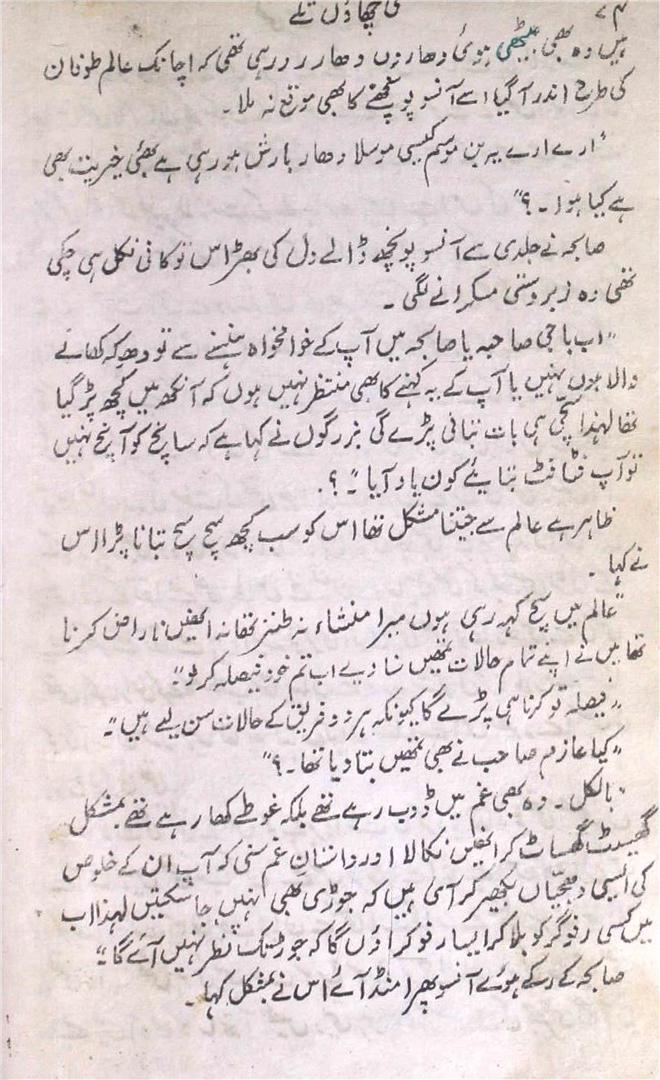 ۷۴ کی چھاؤں تلے
ہیں وہ بھی بیٹھی ہوئی دھاروں دھار رو رہی تھی کہ اچانک عالم طوفان
کی طرح اندر آگیا اسے آنسو پونچھنے کا بھی موقع نہ ملا۔
"ارے ارے یہ بن موسم کیسی موسلا دھار بارش ہو رہی ہے بھئی خیریت بھی
ہے کیا ہوا۔؟"
صابحہ نے جلدی سے آنسو پونچھ ڈالے دل کی بھڑاس تو کافی نکل ہی چکی
تھی وہ زبردستی مسکرانے لگی۔
"اب باجی صاحبہ یا صابحہ میں آپ کے خوامخواہ ہنسنے سے تو دھوکہ کھانے
والا ہوں نہیں یا آپ کے یہ کہنے کا بھی منتظر نہیں ہوں کہ آنکھ میں کچھ پڑ گیا
تھا لہٰذا سچی ہی بات بتانی پڑے گی بزرگوں نے کہا ہے کہ سانچ کو آنچ نہیں
تو آپ فٹافٹ بتایئے کون یاد آیا"۔؟
ظاہر ہے عالم سے جیتنا مشکل تھا اس کو سب کچھ سچ سچ بتانا پڑا اس
نے کہا۔
"عالم میں سچ کہہ رہی ہوں میرا منشاء نہ طنز تھا نہ انھیں ناراض کرنا
تھا میں نے اپنے تمام حالات تمھیں سنا دیے اب تم خود فیصلہ کر لو"۔
"فیصلہ تو کرنا ہی پڑے گا کیونکہ ہر دو فریق کے حالات سن لیے ہیں"۔
"کیا عازم صاحب نے بھی تمھیں بتا دیا تھا۔؟"
"بالکل۔ وہ بھی غم میں ڈوب رہے تھے بلکہ غوطے کھا رہے تھے بمشکل
گھسیٹ گھساٹ کر انھیں نکالا اور داستان غم سنی کہ آپ ان کے خلوص
کی ایسی دھجیاں بکھیر کر آئی ہیں کہ جوڑی بھی نہیں جا سکتیں لہٰذا اب
میں کسی رفوگر کو بلا کر ایسا رفو کراؤں گا کہ جوڑ تک نظر نہیں آئے گا"۔
صابحہ کے رکے ہوئے آنسو پھر امنڈ آئے اس نے بمشکل کہا۔